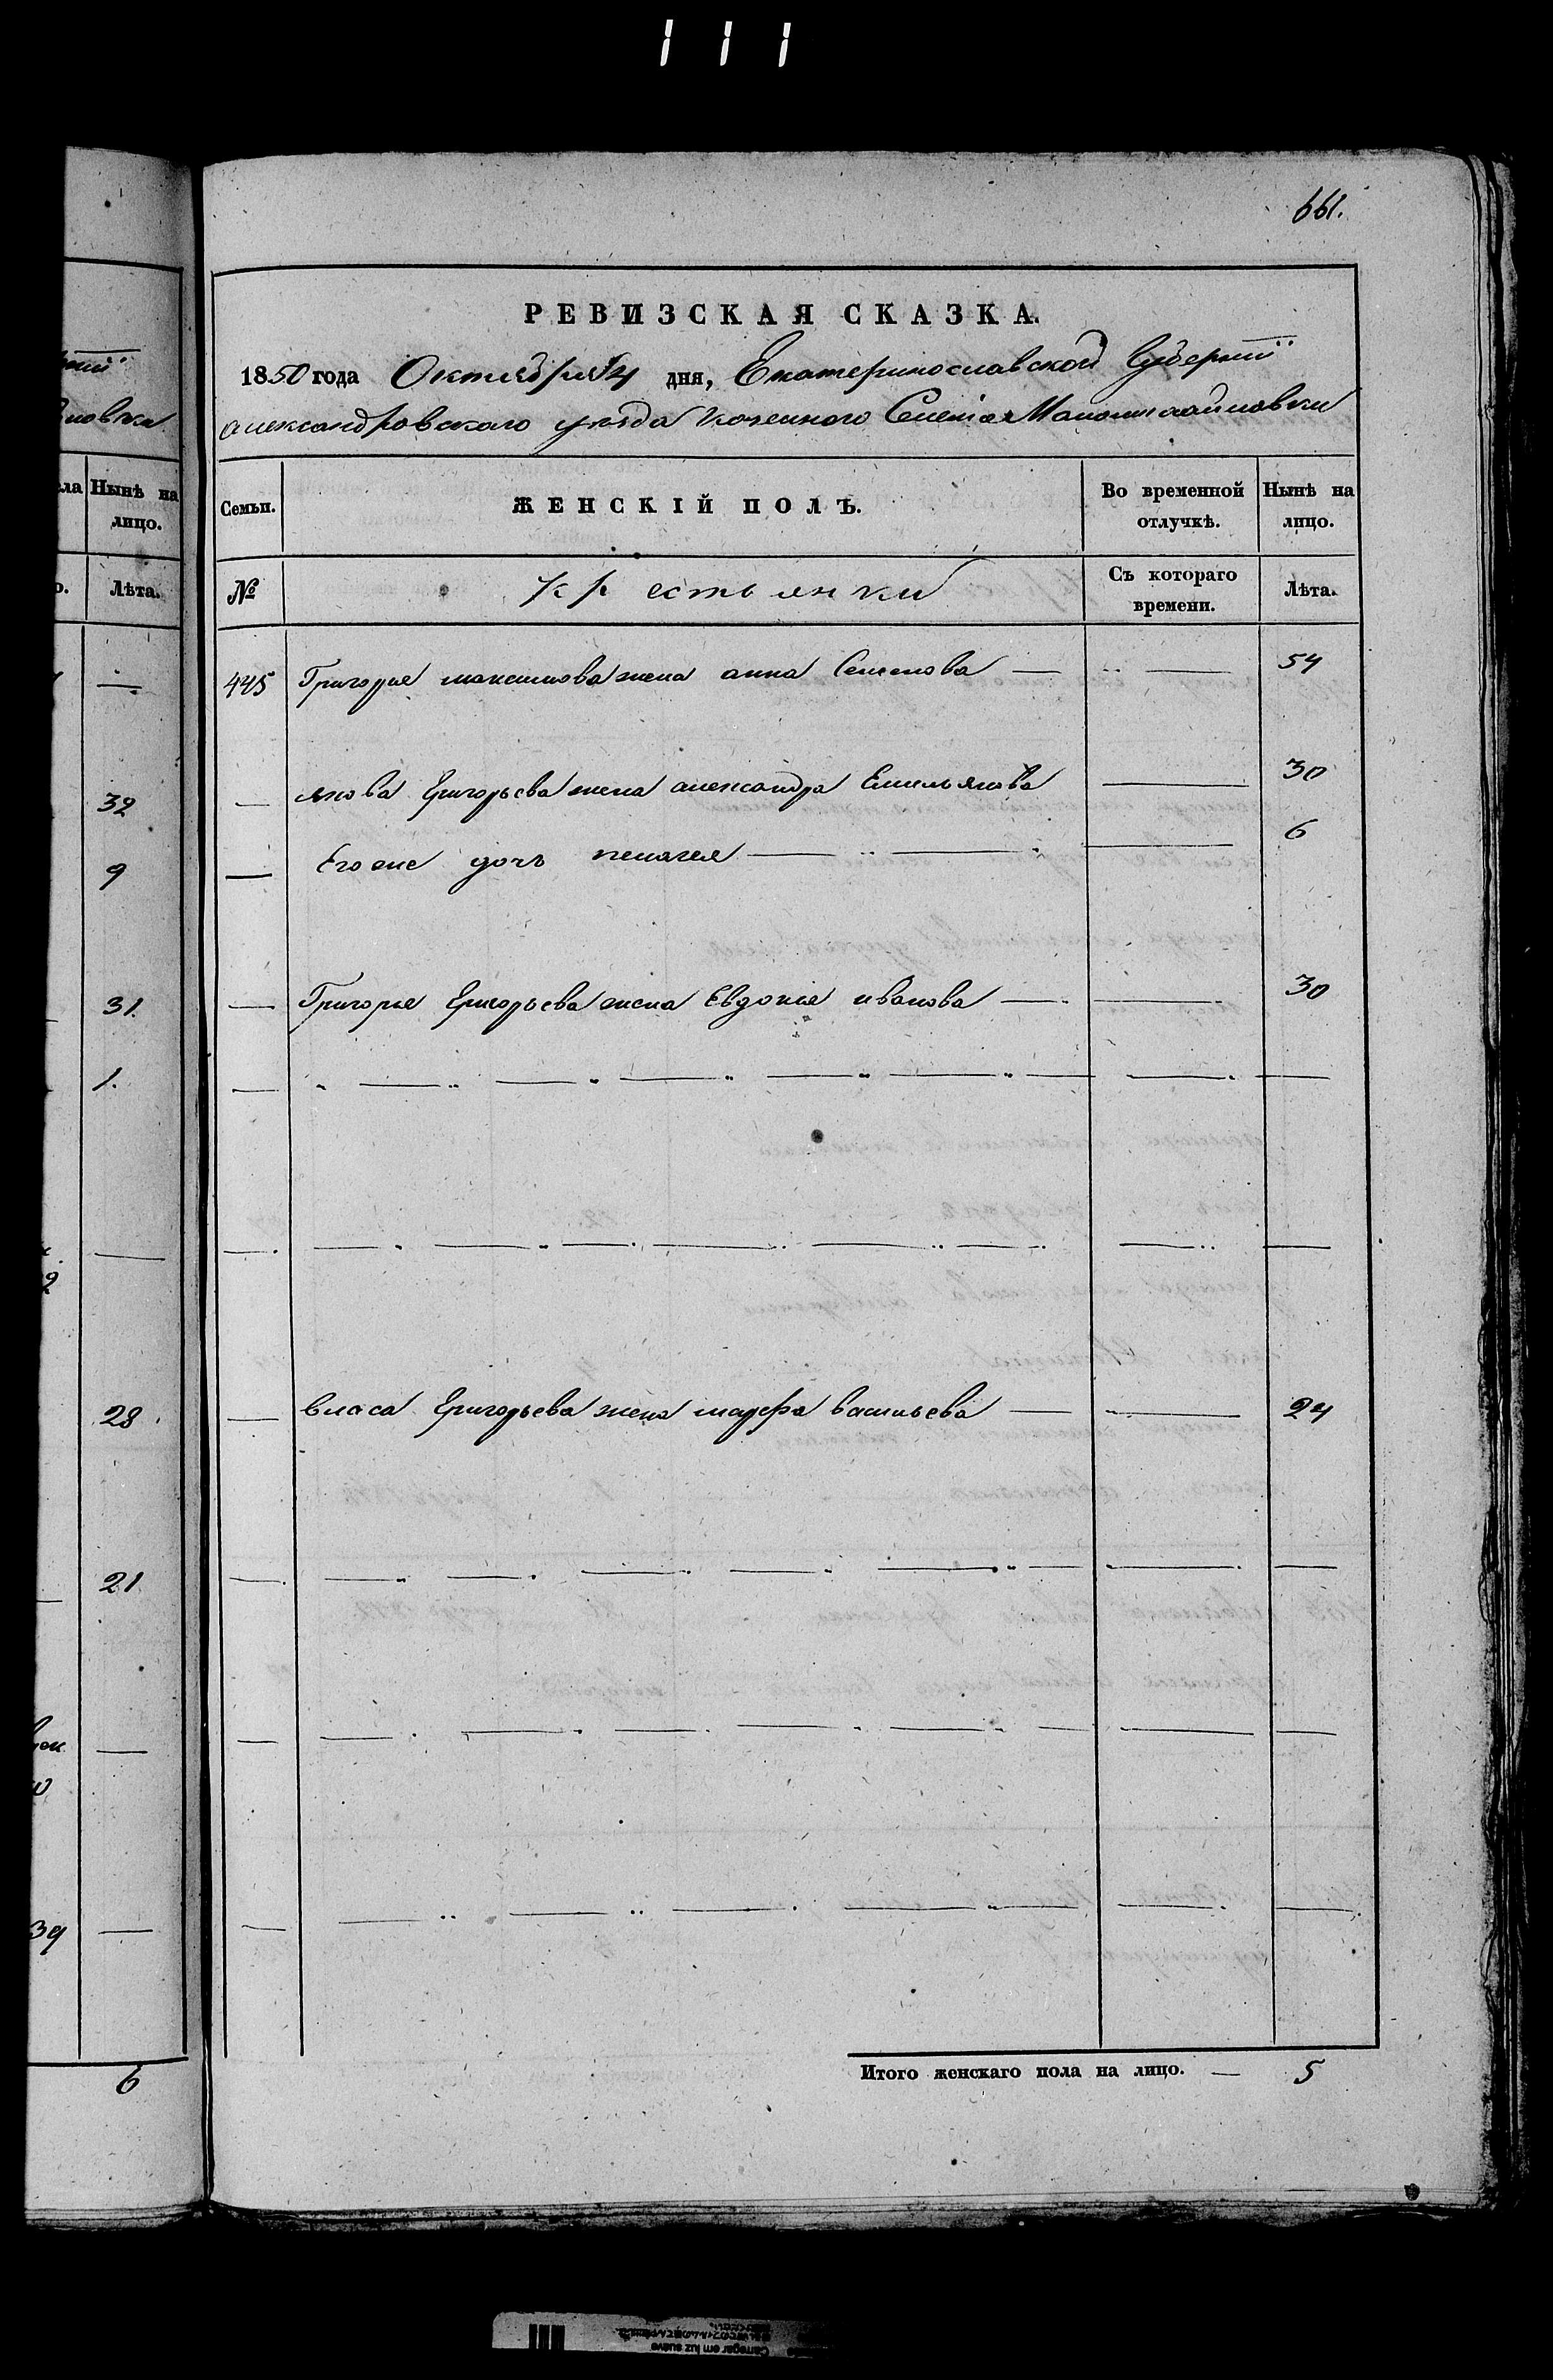 111
661.
РЕВИЗСКАЯ СКАЗКА.
1850 года Октября 4 дня, Екатеринославской Губернiи
александровскаго уезда казенного Селенiя Маломихайловки
новки
ла Нынѣ на лицо.
Семьи. ЖЕНСКІЙ ПОЛЪ. Во временной отлучкѣ. Нынѣ на лицо.
Лѣта.
№ крестьянки Съ котораго времени. Лѣта.
445 Григорiя максимова жена анна Семенова — — 54
32
— якова Григорьева жена александра Емельянова — 30
9
— Его же дочь пелагея — — — 6
31.
— Григорiя Григорьева жена Евдокiя иванова — — 30
1.
28
— власа Григорьева жена марфа васильева — — 24
21
39 —
6
Итого женскаго пола на лицо. — 5
Carregar em luz suave